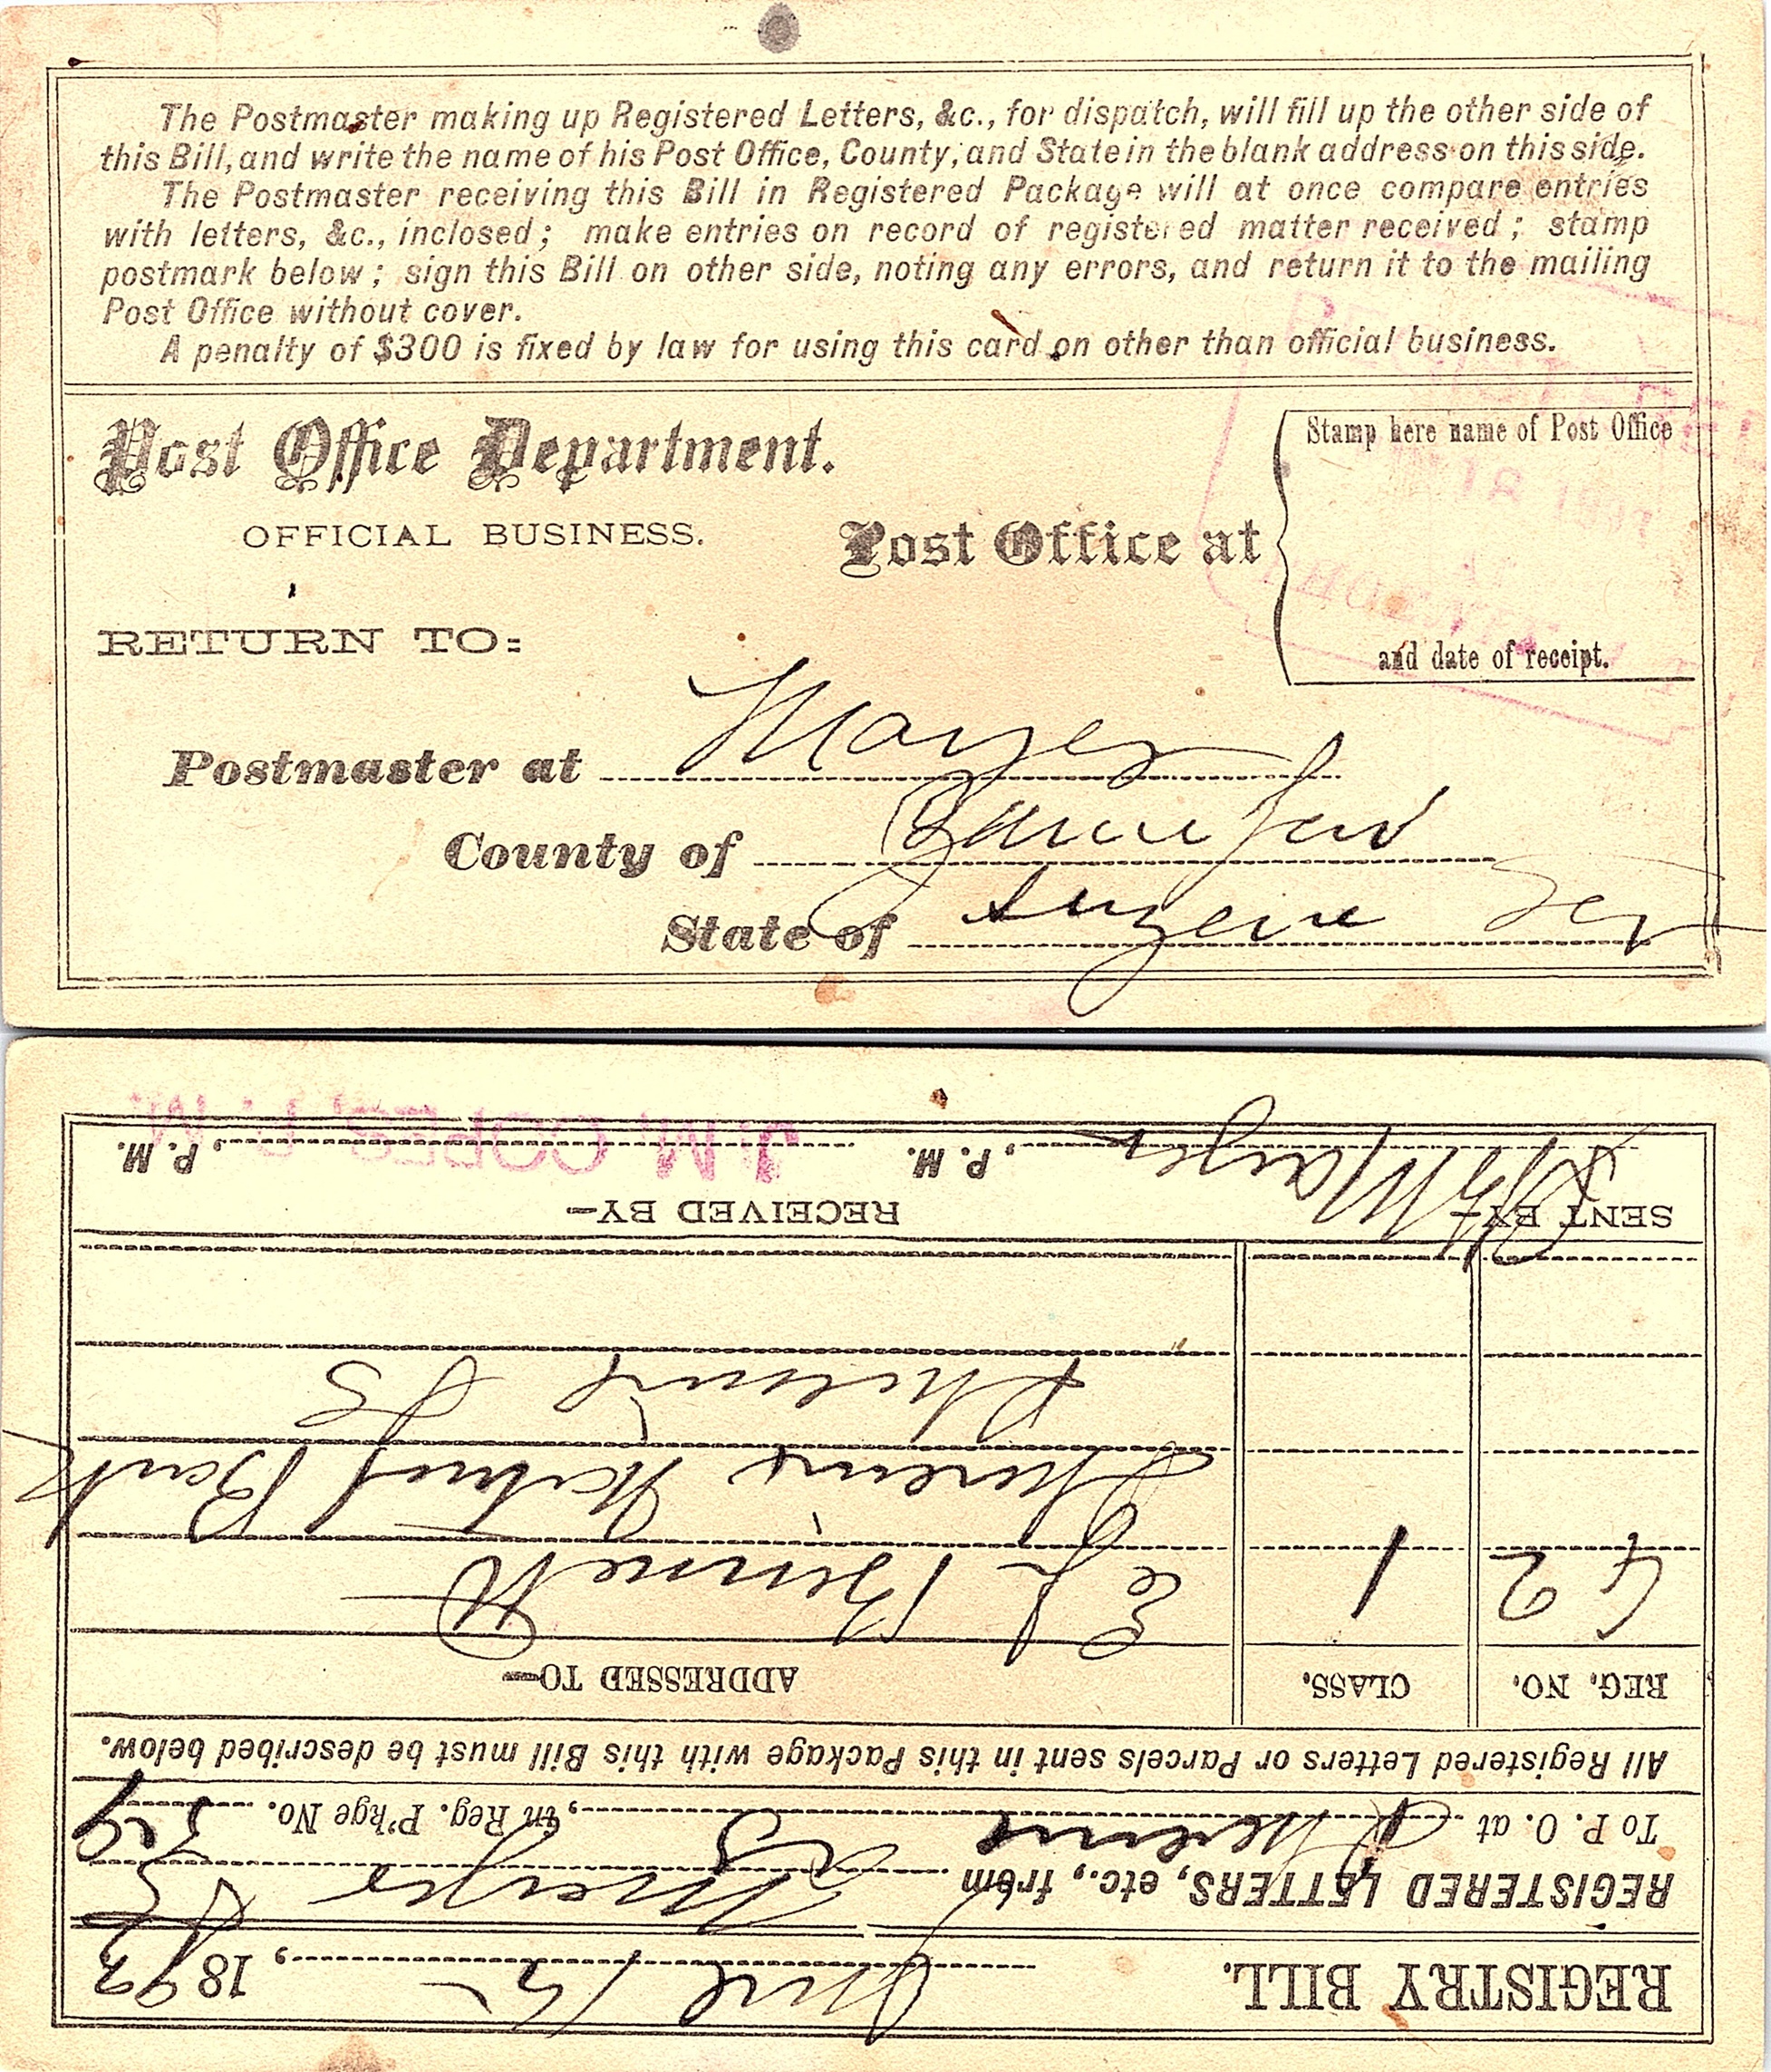 The Postmaster making up Registered Letters, &c., for dispatch, will fill up the other side of
this Bill, and write the name of his Post Office, County, and State in the blank address on this side.
The Postmaster receiving this Bill in Registered Package will at once compare entries
with letters, &c., inclosed; make entries on record of registered matter received; stamp
postmark below; sign this Bill on other side, noting any errors, and return it to the mailing
Post Office without cover.
A penalty of $300 is fixed by law for using this card on other than official business.
Post Office Department.
OFFICIAL BUSINESS.
Post Office at
Stamp here name of Post Office
and date of receipt.
REGISTERED
RETURN TO:
Postmaster at Mayer
County of
State of
REGISTRY BILL.
15, 1893
REGISTERED LETTERS, etc., from Mayer
To P. O. at Phoenix, in Reg. P'kge No.
All Registered Letters or Parcels sent in this Package with this Bill must be described below.
REG. NO. CLASS. ADDRESSED TO—
42 1 E J Bennett
Phoenix National Bank
Phoenix
SENT BY— RECEIVED BY—
Mayer, P. M. J. M. COPES, P. M., P. M.